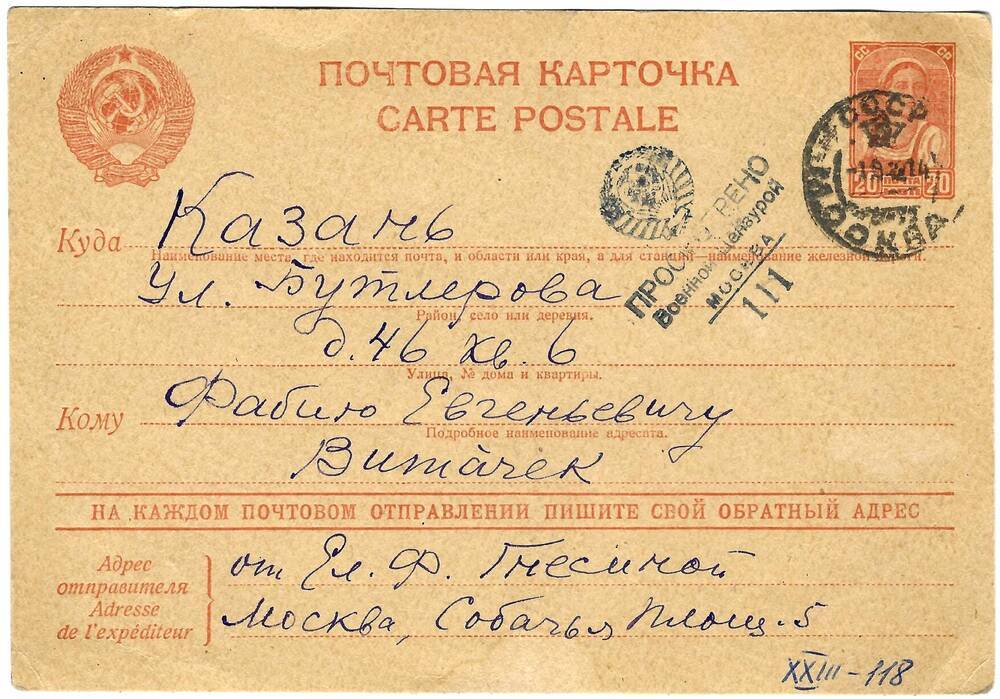 ПОЧТОВАЯ КАРТОЧКА
CARTE POSTALE
СС СР
СССР
МОСКВА
20 ПОЧТА 20
ПРОСМОТРЕНО
Военной Цензурой
МОСКВА
111
Куда Казань
Наименование места, где находится почта, и области или края, а для станций—наименование железной дороги.
Ул. Бутлерова
Район, село или деревня.
д. 46 кв. 6
Улица, № дома и квартиры.
Кому Фабию Евгеньевичу
Подробное наименование адресата.
Витачек
НА КАЖДОМ ПОЧТОВОМ ОТПРАВЛЕНИИ ПИШИТЕ СВОЙ ОБРАТНЫЙ АДРЕС
Адрес
отправителя
Adresse
de l'expéditeur
от Ел. Ф. Гнесиной
Москва, Собачья Площ. 5
XXIII-118